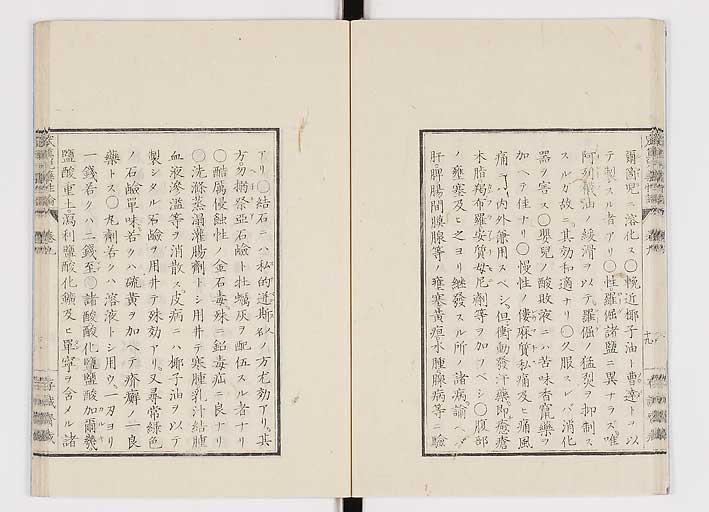 爾箇兒ニ溶化ス〇輓近椰子油ト曹達トヲ以
テ製スル者アリ〇性羅倔諸鹽ニ異ナラズ唯
阿列襪油ノ緩滑ヲ以テ羅倔ノ猛烈ヲ抑制ス
スルガ故ニ其効和適ナリ〇久服スレバ消化
器ヲ害ス〇嬰兒ノ酸敗液ニハ苦味香竄藥ヲ
加ヘテ佳ナリ〇慢性ノ僂麻質私痛及ヒ痛風
痛ニハ内外兼用スベシ但衝動發汗藥即癒瘡
木脂羯布羅安質母尼劑等ヲ加フベシ〇腹部
ノ壅塞及ヒ之ヨリ繼發スル所ノ諸病諭ヘバ
肝脾腸間膜腺等ノ壅塞黄疸水腫腺病等ニ驗
アリ〇結石ニハ私的迸斯ノ方尤効アリ其
方猶祭亞石鹼ト牡蠣灰ヲ配伍スル者ナリ
〇酷厲侵蝕性ノ金石毒殊ニ鉛毒疝ニ良ナリ
〇洗滌蒸溻灌腸劑トシ用井テ寒腫乳汁結腫
血液滲溢等ヲ消散ス皮病ニハ椰子油ヲ以テ
製シタル石鹼ヲ用井テ殊効アリ又尋常緑色
ノ石鹼單味若クハ硫黄ヲ加ヘテ疥癬ノ一良
藥トス〇丸劑若クハ溶液トシ用ウ一刃ヨリ
一錢若クハ二錢至〇諸酸酸化鹽鹽酸加爾幾
鹽酸重土瀉利鹽酸化鑛及ヒ單寧ヲ含メル諸